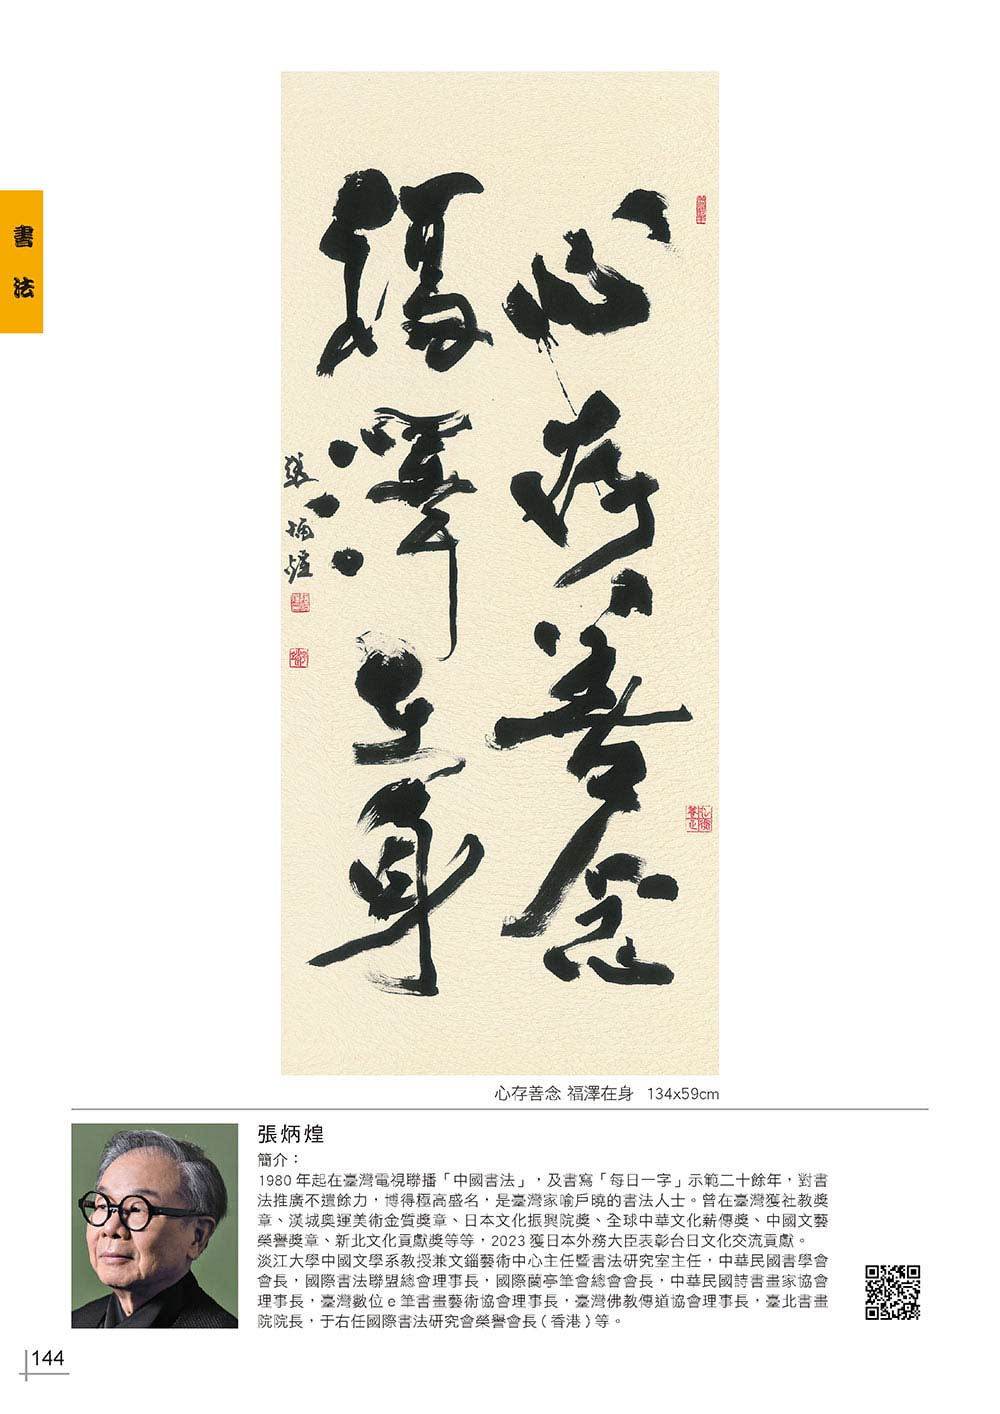 書法
心存善念
福澤在身
張炳煌
心存善念 福澤在身 134x59cm
張炳煌
簡介：
1980 年起在臺灣電視聯播「中國書法」，及書寫「每日一字」示範二十餘年，對書
法推廣不遺餘力，博得極高盛名，是臺灣家喻戶曉的書法人士。曾在臺灣獲社教獎
章、漢城奧運美術金質獎章、日本文化振興院獎、全球中華文化薪傳獎、中國文藝
榮譽獎章、新北文化貢獻獎等等，2023 獲日本外務大臣表彰台日文化交流貢獻。
淡江大學中國文學系教授兼文錙藝術中心主任暨書法研究室主任，中華民國書學會
會長，國際書法聯盟總會理事長，國際蘭亭筆會總會會長，中華民國詩書畫家協會
理事長，臺灣數位 e 筆書畫藝術協會理事長，臺灣佛教傳道協會理事長，臺北書畫
院院長，于右任國際書法研究會榮譽會長（香港）等。
144